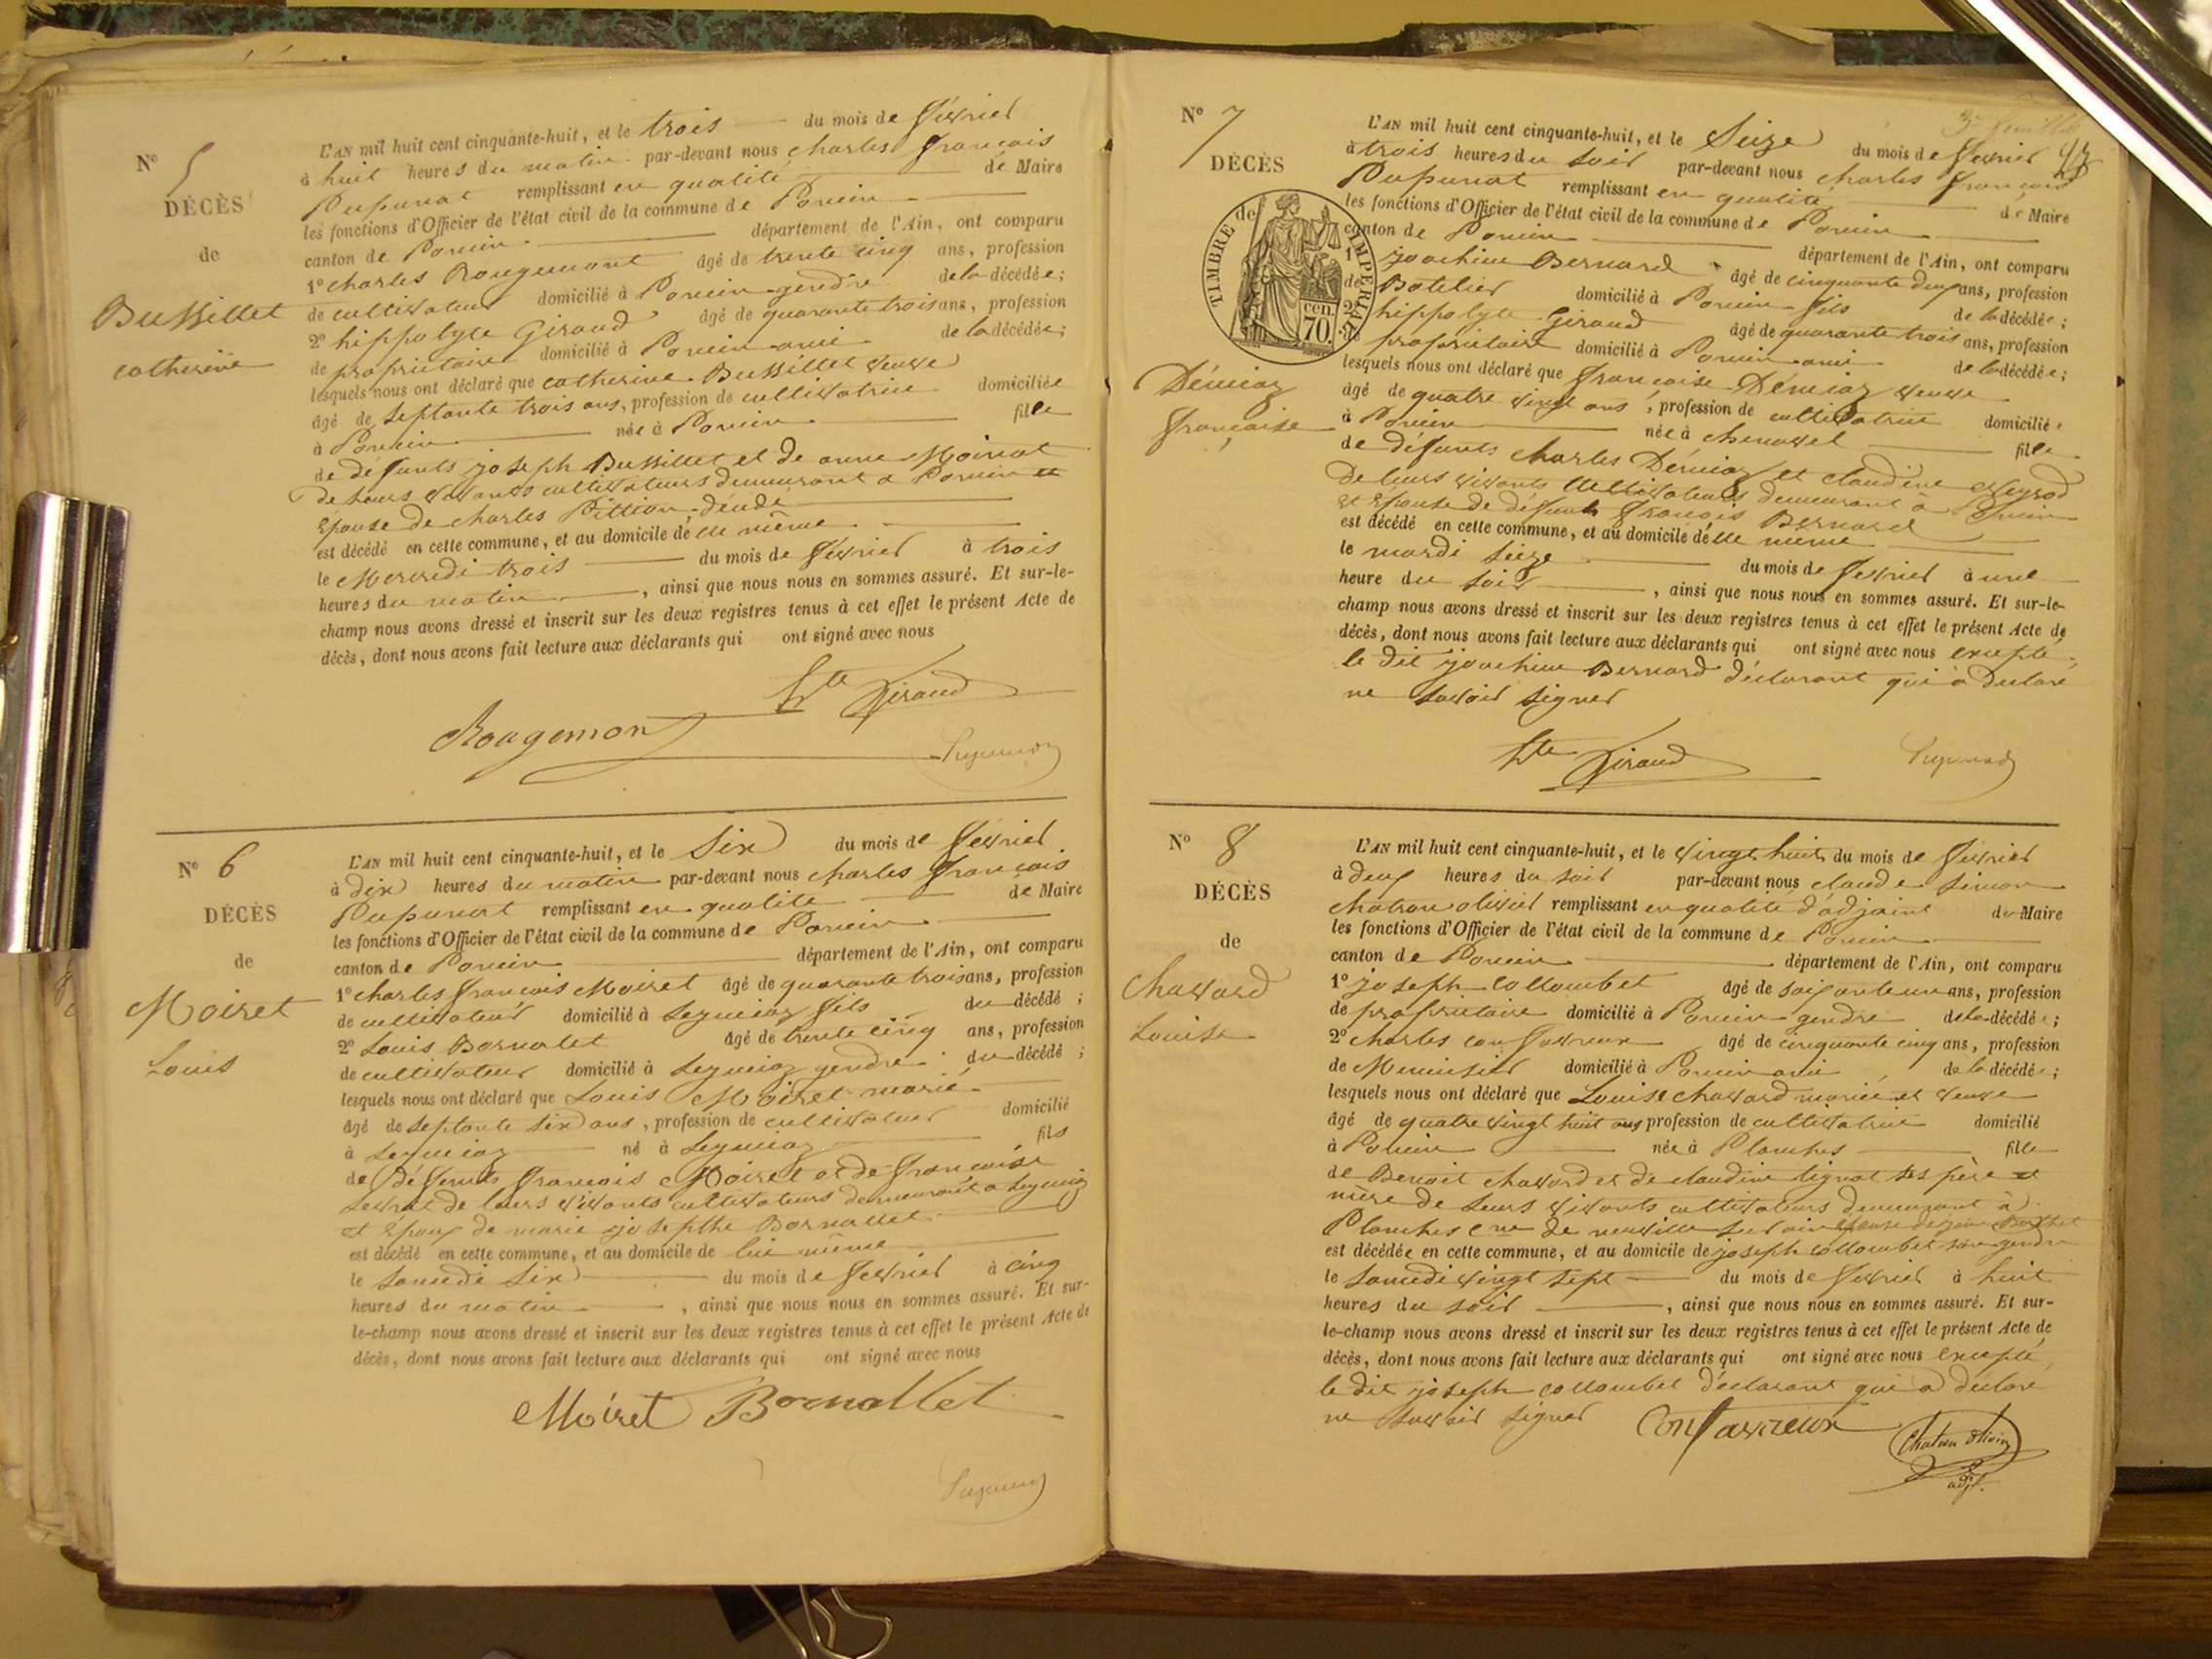 N° 5
DÉCÈS
de
Bussillet
catherine
L'AN mil huit cent cinquante-huit, et le trois du mois de février
à huit heures du matin par-devant nous charles françois
Pupunat remplissant en qualité de Maire
les fonctions d'Officier de l'état civil de la commune de Poncin
canton de Poncin département de l'Ain, ont comparu
1° charles Rougemont âgé de trente cinq ans, profession
de cultivateur domicilié à Poncin gendre de la décédée;
2° hippolyte Giraud âgé de quarante trois ans, profession
de propriétaire domicilié à Poncin ami de la décédée;
lesquels nous ont déclaré que catherine Bussillet veuve
âgé de septante trois ans, profession de cultivatrice domiciliée
à Poncin née à Poncin fille
de défunts joseph Bussillet et de anne Moirat
de leurs vivants cultivateurs demeurant a Poncin et
épouse de charles Pittion
est décédé en cette commune, et au domicile d'elle même
le Mercredi trois du mois de février à trois
heures du matin, ainsi que nous nous en sommes assuré. Et sur-le-
champ nous avons dressé et inscrit sur les deux registres tenus à cet effet le présent Acte de
décès, dont nous avons fait lecture aux déclarants qui ont signé avec nous
hte Giraud
Rougemon
Pupunat
N° 6
DÉCÈS
de
Moiret
Louis
L'AN mil huit cent cinquante-huit, et le Six du mois de février
à dix heures du matin par-devant nous charles françois
Pupunat remplissant en qualité de Maire
les fonctions d'Officier de l'état civil de la commune de Poncin
canton de Poncin département de l'Ain, ont comparu
1° charles françois Moiret âgé de quarante trois ans, profession
de cultivateur domicilié à Leymiaz fils du décédé;
2° Louis Bornalet âgé de trente cinq ans, profession
de cultivateur domicilié à Leymiaz gendre du décédé;
lesquels nous ont déclaré que Louis Moiret marié
âgé de septante six ans, profession de cultivateur domicilié
à Leymiaz né à Leymiaz fils
de défunts françois Moiret et de françoise
de leurs vivants cultivateurs demeurant a Leymiaz
et époux de marie josepthe Bornallet
est décédé en cette commune, et au domicile de lui même
le samedi six du mois de février à cinq
heures du matin, ainsi que nous nous en sommes assuré. Et sur-
le-champ nous avons dressé et inscrit sur les deux registres tenus à cet effet le présent Acte de
décès, dont nous avons fait lecture aux déclarants qui ont signé avec nous
Moiret Bornallet
Pupunat
3e feuillet
N° 7
DÉCÈS
TIMBRE IMPÉRIAL
de
cen. 70.
Démiaz
françoise
L'AN mil huit cent cinquante-huit, et le Seize du mois de février
à trois heures du soir par-devant nous charles françois
Pupunat remplissant en qualité de Maire
les fonctions d'Officier de l'état civil de la commune de Poncin
canton de Poncin département de l'Ain, ont comparu
1° joachim Bernard âgé de cinquante deux ans, profession
de Batelier domicilié à Poncin fils de la décédée;
2° hippolyte Giraud âgé de quarante trois ans, profession
de propriétaire domicilié à Poncin ami de la décédée;
lesquels nous ont déclaré que françoise Démiaz veuve
âgé de quatre vingt ans, profession de cultivatrice domiciliée
à Poncin née à chenavel fille
de défunts charles Démiaz et claudine
de leurs vivants cultivateurs demeurant à Poncin
et épouse de défunt françois Bernard
est décédé en cette commune, et au domicile d'elle même
le mardi seize du mois de février à une
heure du soir, ainsi que nous nous en sommes assuré. Et sur-le-
champ nous avons dressé et inscrit sur les deux registres tenus à cet effet le présent Acte de
décès, dont nous avons fait lecture aux déclarants qui ont signé avec nous excepté
le dit joachim Bernard déclarant qui à déclaré
ne savoir signer
hte Giraud
Pupunat
N° 8
DÉCÈS
de
Chavard
Louise
L'AN mil huit cent cinquante-huit, et le vingt huit du mois de février
à deux heures du soir par-devant nous claude simon
chatron olivier remplissant en qualité d'adjoint du Maire
les fonctions d'Officier de l'état civil de la commune de Poncin
canton de Poncin département de l'Ain, ont comparu
1° joseph collombet âgé de soixante un ans, profession
de propriétaire domicilié à Poncin gendre de la décédée;
2° charles confavreux âgé de cinquante cinq ans, profession
de Menuisier domicilié à Poncin ami de la décédée;
lesquels nous ont déclaré que Louise chavard mariée et veuve
âgé de quatre vingt huit ans profession de cultivatrice domicilié
à Poncin née à Planches fille
de Benoit chavard et de claudine tignat ses père et
mère de leurs vivants cultivateurs demeurant à
Planches cne de neuville sur ain épouse de
est décédée en cette commune, et au domicile de joseph collombet son gendre
le samedi vingt sept du mois de février à huit
heures du soir, ainsi que nous nous en sommes assuré. Et sur-
le-champ nous avons dressé et inscrit sur les deux registres tenus à cet effet le présent Acte de
décès, dont nous avons fait lecture aux déclarants qui ont signé avec nous excepté
le dit joseph collombet déclarant qui a déclaré
ne savoir signer Confavreux
Chatron olivier
adjt.